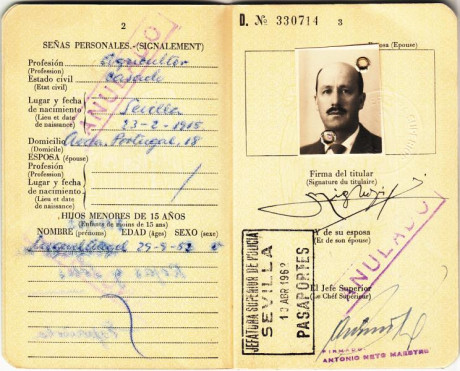 2
SEÑAS PERSONALES.-(SIGNALEMENT)
Profesión Agricultor
(Profession)
Estado civil casado
(Etat civil)
Lugar y fecha
de nacimiento Sevilla
(Lieu et date de
naissance) 23-2-1915
Domicilio Avda. Portugal, 18
(Domicile)
ESPOSA (épouse)
Profesión
(Profession)
Lugar y fecha
de nacimiento
(Lieu et date de
naissance)
HIJOS MENORES DE 15 AÑOS
(Enfants de moins de 15 ans)
NOMBRE (prénoms) EDAD (âges) SEXO (sexe)
29-9-53
ANULADO
D. Nº 330714 3
Esposa (Epouse)
Firma del titular
(Signature du titulaire)
Y de su esposa
(Et de son épouse)
JEFATURA SUPERIOR DE POLICIA
SEVILLA
PASAPORTES
ANULADO
El Jefe Superior
(Le Chef Supérieur)
ANTONIO NETO MAESTRO